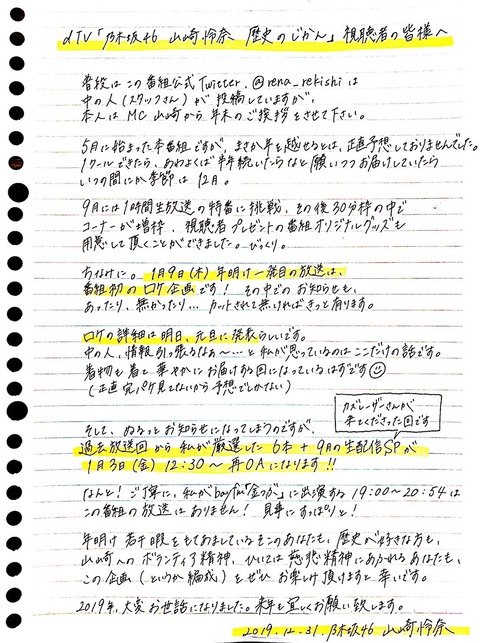 dTV「乃木坂46 山崎怜奈 歴史のじかん」視聴者の皆様へ
普段はこの番組公式Twitter、@rena_rekishiは
中の人(スタッフさん)が投稿していますが、
本人はMC山崎から年末のご挨拶をさせて下さい。
5月に始まった本番組ですが、まさか年を越せるとは、正直予想しておりませんでした。
1クールできたら、あわよくば半年続いたらなと願いつつお届けしていたら
いつの間にか季節は12月。
9月には1時間生放送の特番に挑戦、その後30分枠の中で
コーナーが増枠、視聴者プレゼントの番組オリジナルグッズも
用意して頂くことができました。びっくり。
ちなみに。1月9日(木)年明け一発目の放送は、
番組初のロケ企画です! その中でのお知らせも、
あったり、無かったり… カットされて無ければきっと有ります。
ロケの詳細は明日、元旦に発表らしいです。
中の人、情報引っ張るなぁ〜…と私が思っているのはここだけの話です。
着物も着て華やかにお届けする回になっているはずです☺
(正直完パケ見てないから予想でしかない)
カズレーザーさんが
来てくださった回です
そして、ぬるっとお知らせになってしまうのですが、
過去放送回から私が厳選した6本+9月の生配信SPが
1月3日(金) 12:30〜再OAになります!!
なんと!ご丁寧に、私がbayfm「金つぶ」に出演する19:00〜20:54は
この番組の放送はありません! 見事にすっぽりと!
年明け若干暇をもてあましているそこのあなたも、歴史が好きな方も、
山崎へのボランティア精神、ひいては慈悲精神にあふれるあなたも、
この企画(というか編成)をぜひお楽しみ頂けますと幸いです。
2019年、大変お世話になりました。来年も宜しくお願い致します。
2019.12.31. 乃木坂46 山崎怜奈